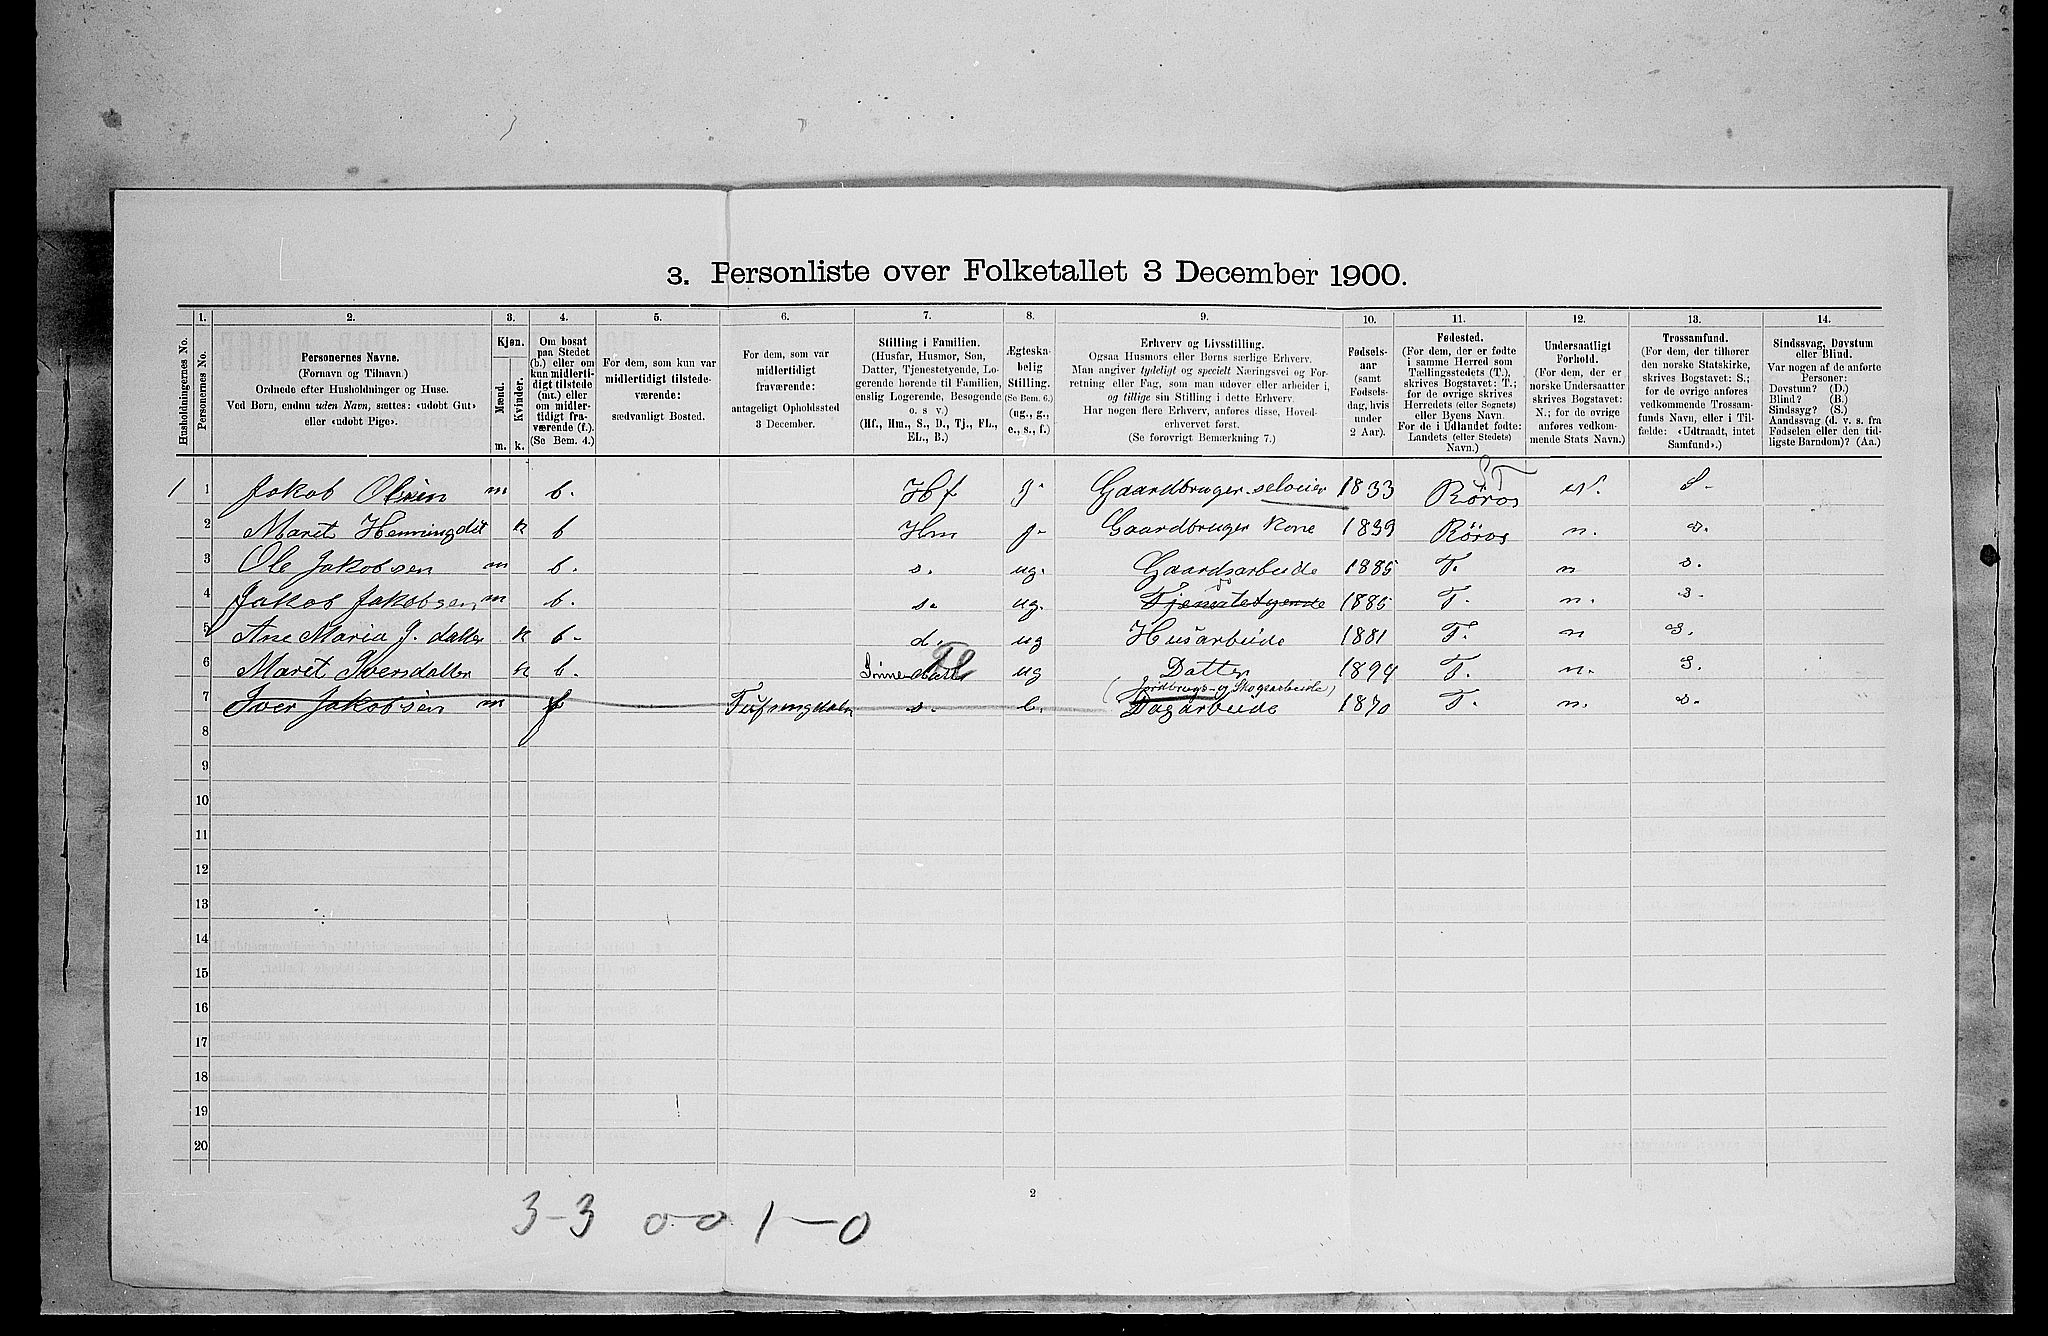 3. Personliste over Folketallet 3 December 1900.
1. 2. 3. 4. 5. 6. 7. 8. 9. 10. 11. 12. 13. 14.
Husholdningernes No.
Personernes No.
Personernes Navne.
(Fornavn og Tilnavn.)
Ordnede efter Husholdninger og Huse.
Ved Børn, endnu uden Navn, sættes: «udøbt Gut»
eller «udøbt Pige».
Kjøn.
Mænd.
Kvinder.
m. k.
Om bosat
paa Stedet
(b.) eller om
kun midlerti-
digt tilstede
(mt.) eller
om midler-
tidigt fra-
værende (f.).
(Se Bem. 4.)
For dem, som kun var
midlertidigt tilstede-
værende:
sædvanligt Bosted.
For dem, som var
midlertidigt
fraværende:
antageligt Opholdssted
3 December.
Stilling i Familien.
(Husfar, Husmor, Søn,
Datter, Tjenestetyende, Lo-
gerende hørende til Familien,
enslig Logerende, Besøgende
o. s v.)
(Hf., Hm., S., D., Tj., FL.,
EL., B.)
Ægteska-
belig
Stilling.
(Se Bem. 6.)
(ug., g.,
e., s., f.)
Erhverv og Livsstilling.
Ogsaa Husmors eller Børns særlige Erhverv.
Man angiver tydeligt og specielt Næringsvei og For-
retning eller Fag, som man udøver eller arbeider i,
og tillige sin Stilling i dette Erhverv.
Har nogen flere Erhverv, anføres disse, Hoved-
erhvervet først.
(Se forøvrigt Bemærkning 7.)
Fødsels-
aar
(samt
Fødsels-
dag, hvis
under
2 Aar).
Fødested.
(For dem, der er fødte
i samme Herred som
Tællingsstedets (T.),
skrives Bogstavet: T.;
for de øvrige skrives
Herredets (eller Sognets)
eller Byens Navn.
For de i Udlandet fødte:
Landets (eller Stedets)
Navn.)
Undersaatligt
Forhold.
(For dem, der er
norske Undersaatter
skrives Bogstavet:
N.; for de øvrige
anføres vedkom-
mende Stats Navn.)
Trossamfund.
(For dem, der tilhører
den norske Statskirke,
skrives Bogstavet: S.;
for de øvrige anføres
vedkommende Trossam-
funds Navn, eller i Til-
fælde: «Udtraadt, intet
Samfund».)
Sindssvag, Døvstum
eller Blind.
Var nogen af de anførte
Personer:
Døvstum? (D.)
Blind? (B.)
Sindssyg? (S.)
Aandssvag (d. v. s. fra
Fødselen eller den tid-
ligste Barndom)? (Aa.)
1 1 Jakob Olsen m b. Hf g- Gaardbruger seloeier 1833 Røros T n. S-
2 Maret Henningdat k b Hm g- Gaardbruger Kone 1839 Røros n. s.
3 Ole Jakobsen m b. s. ug. Gaardsarbeide 1885 T. n s.
4 Jakob Jakobsen m b. s. ug. Tjenestetyende do 1885 T. n. s.
5 Ane Maria J. datter k b- d. ug Husarbeide 1881 T. n s.
6 Maret Iversdatter k b. Sønnedatt Fl ug Datter 1894 T. n. s.
(Jordbrugs- og Skogsarbeide)
7 Iver Jakobsen m f s. e. Dagarbeide 1870 T. n. s.
8
9
10
11
12
13
14
15
16
17
18
19
20
2
3-3 0-0 1-0